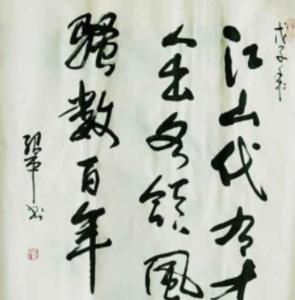 戊子
江山代有才
人出各領風
騷數百年
书